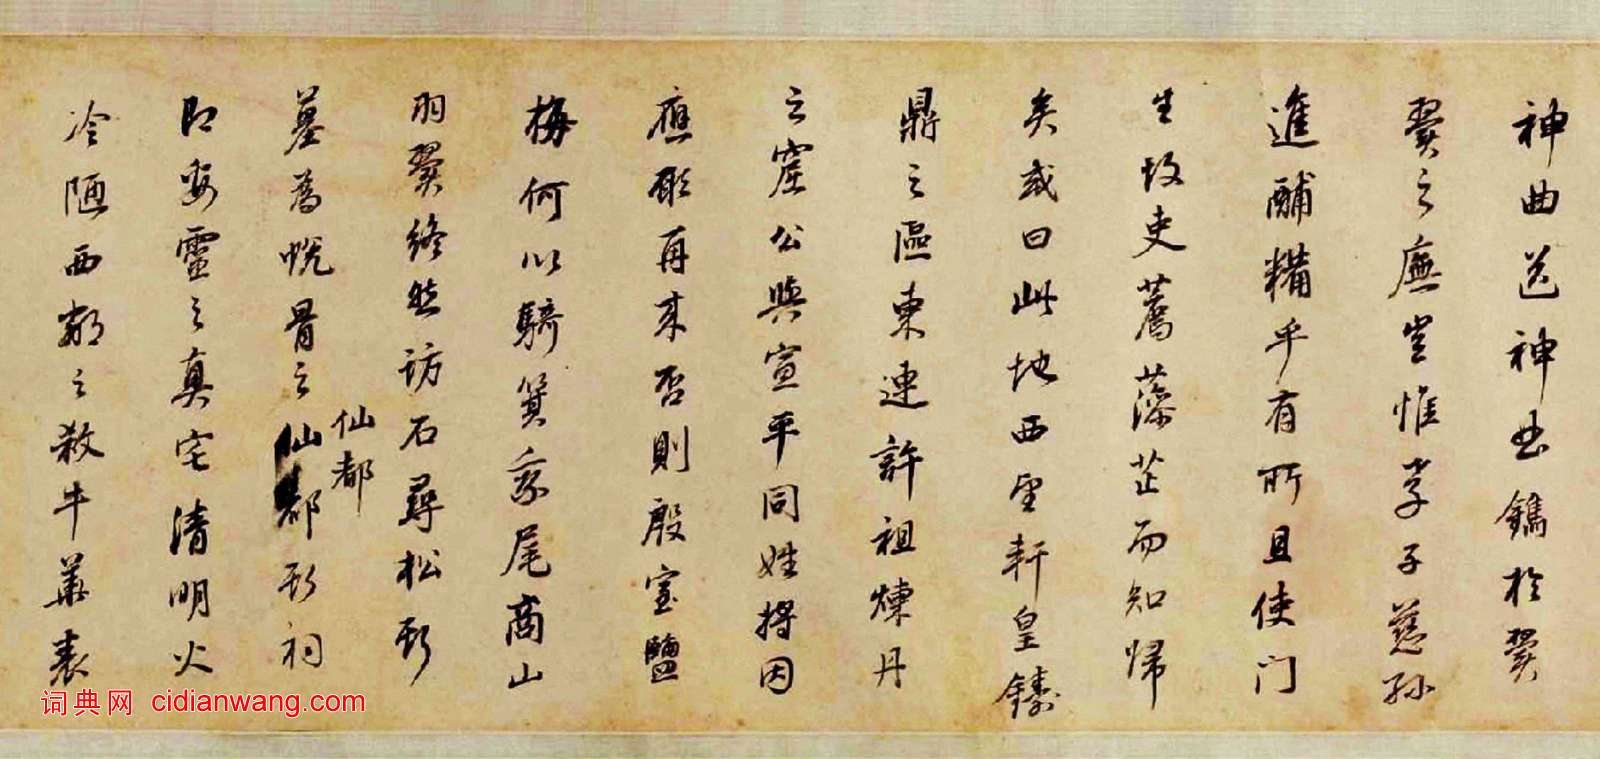 神曲送神曲鐫於翼
翼之廡豈惟孝子慈孫
進酺糒乎有所且使門
生故吏薦藻芷而知歸
矣或曰此地西望軒皇鑄
鼎之區東連許祖煉丹
之窟公與宣平同姓將因
應再來否則殷室鹽
梅何以騎箕乘尾商山
羽翼終然訪石尋松斯
墓為蛻骨之仙都斯祠
仙都
即安靈之真宅清明火
冷陋西鄰之殺牛華表
词典网 cidianwang.com